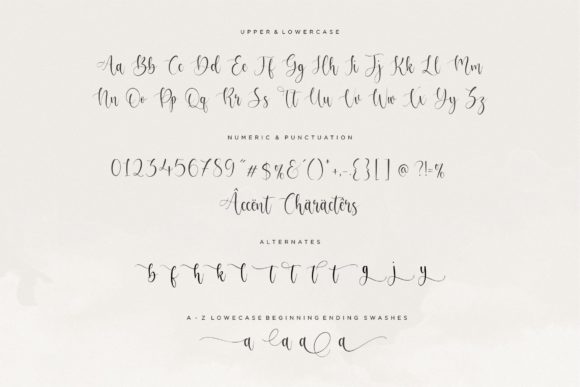 UPPER & LOWERCASE
Aa Bb Cc Dd Ee Ff Gg Hh Ii Jj Kk Ll Mm
Nn Oo Pp Qq Rr Ss Tt Uu Vv Ww Xx Yy Zz
NUMERIC & PUNCTUATION
0123456789"#$%&'()*+,-.{}[]@?!=%
Âccënt Characters
ALTERNATES
b f h k l t t t t g j y
A - Z LOWECASE BEGINNING ENDING SWASHES
a a a a